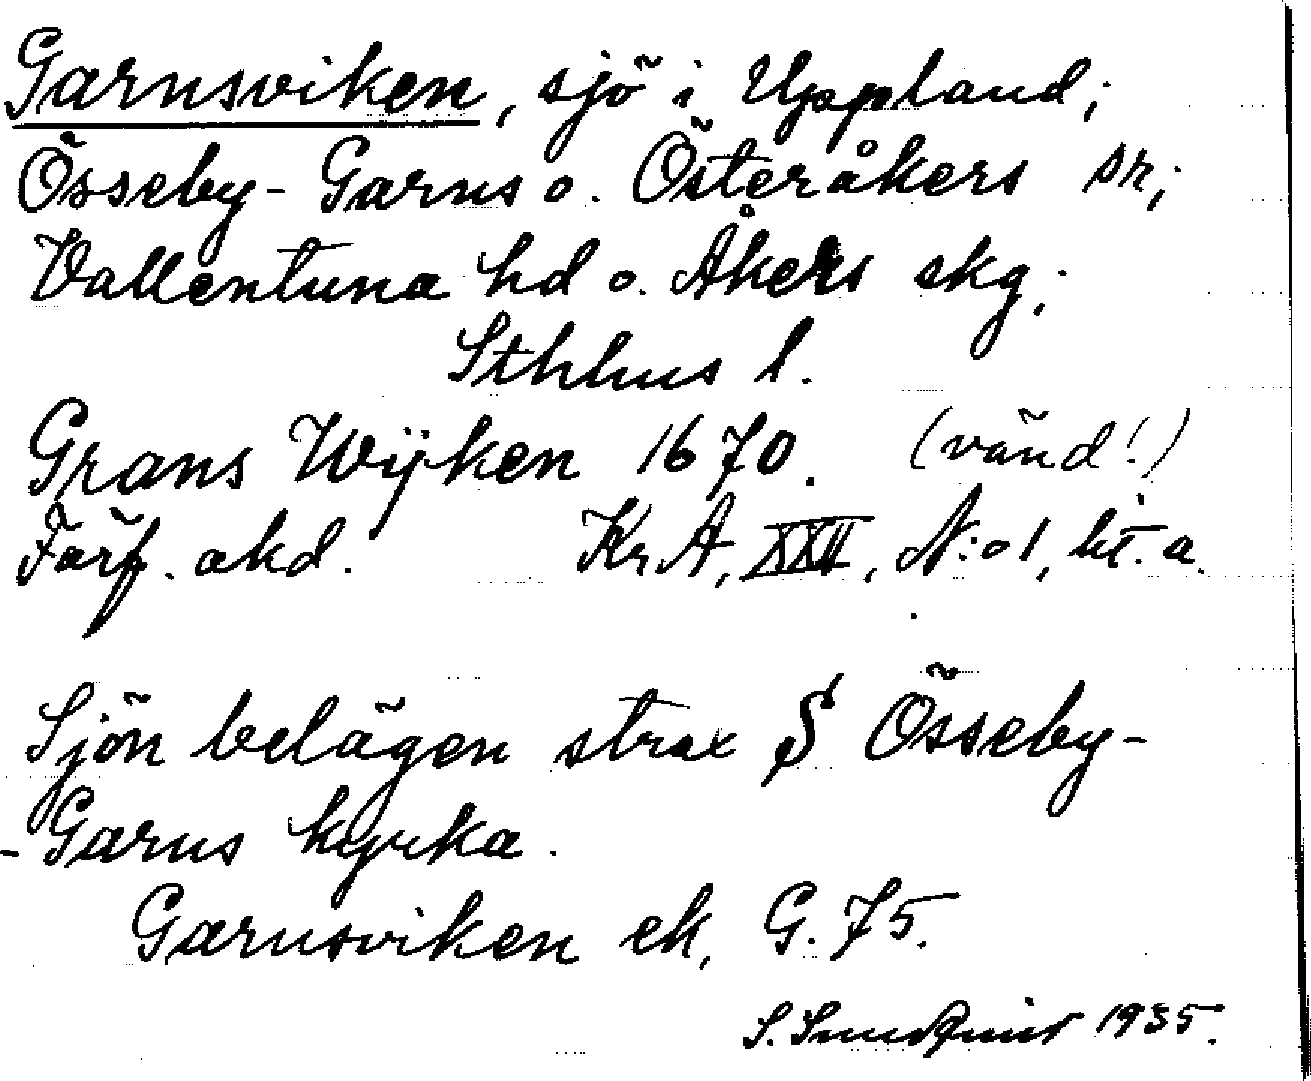 Garnsviken, sjö i Uppland;
Össeby-Garns o. Österåkers sr;
Vallentuna hd o. Åkers skg;
Sthlms l.
Grans Wÿken 1670. (vänd!)
Förf. okd. KrA, XXII, N:o 1, lit. a.
Sjön belägen strax S Össeby-
-Garns kyrka.
Garnsviken ek, G. 75.
S. 1935.